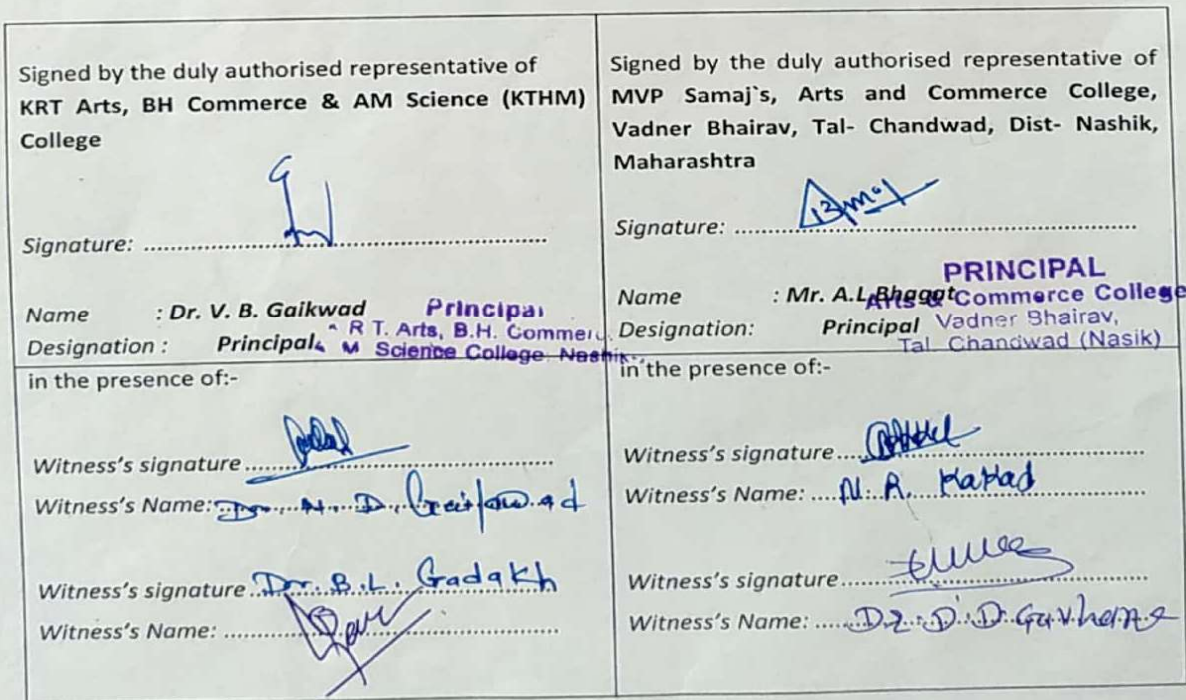 Signed by the duly authorised representative of
KRT Arts, BH Commerce & AM Science (KTHM)
College
Signature: ..........
Name : Dr. V. B. Gaikwad
Principal
R T. Arts, B.H. Commer
Designation : Principal
M Science College Nashik
in the presence of:-
Witness's signature ..........
Witness's Name: Dr. N. D. Gaikwad
Witness's signature Dr. B. L. Gadakh
Witness's Name: ..........
Signed by the duly authorised representative of
MVP Samaj`s, Arts and Commerce College,
Vadner Bhairav, Tal- Chandwad, Dist- Nashik,
Maharashtra
Signature: ..........
PRINCIPAL
Name : Mr. A.L.Bhagat
Arts & Commerce College
Designation: Principal
Vadner Bhairav,
Tal Chandwad (Nasik)
in the presence of:-
Witness's signature ..........
Witness's Name: N. R. Kakad
Witness's signature ..........
Witness's Name: Dr. D. D. Gavhane